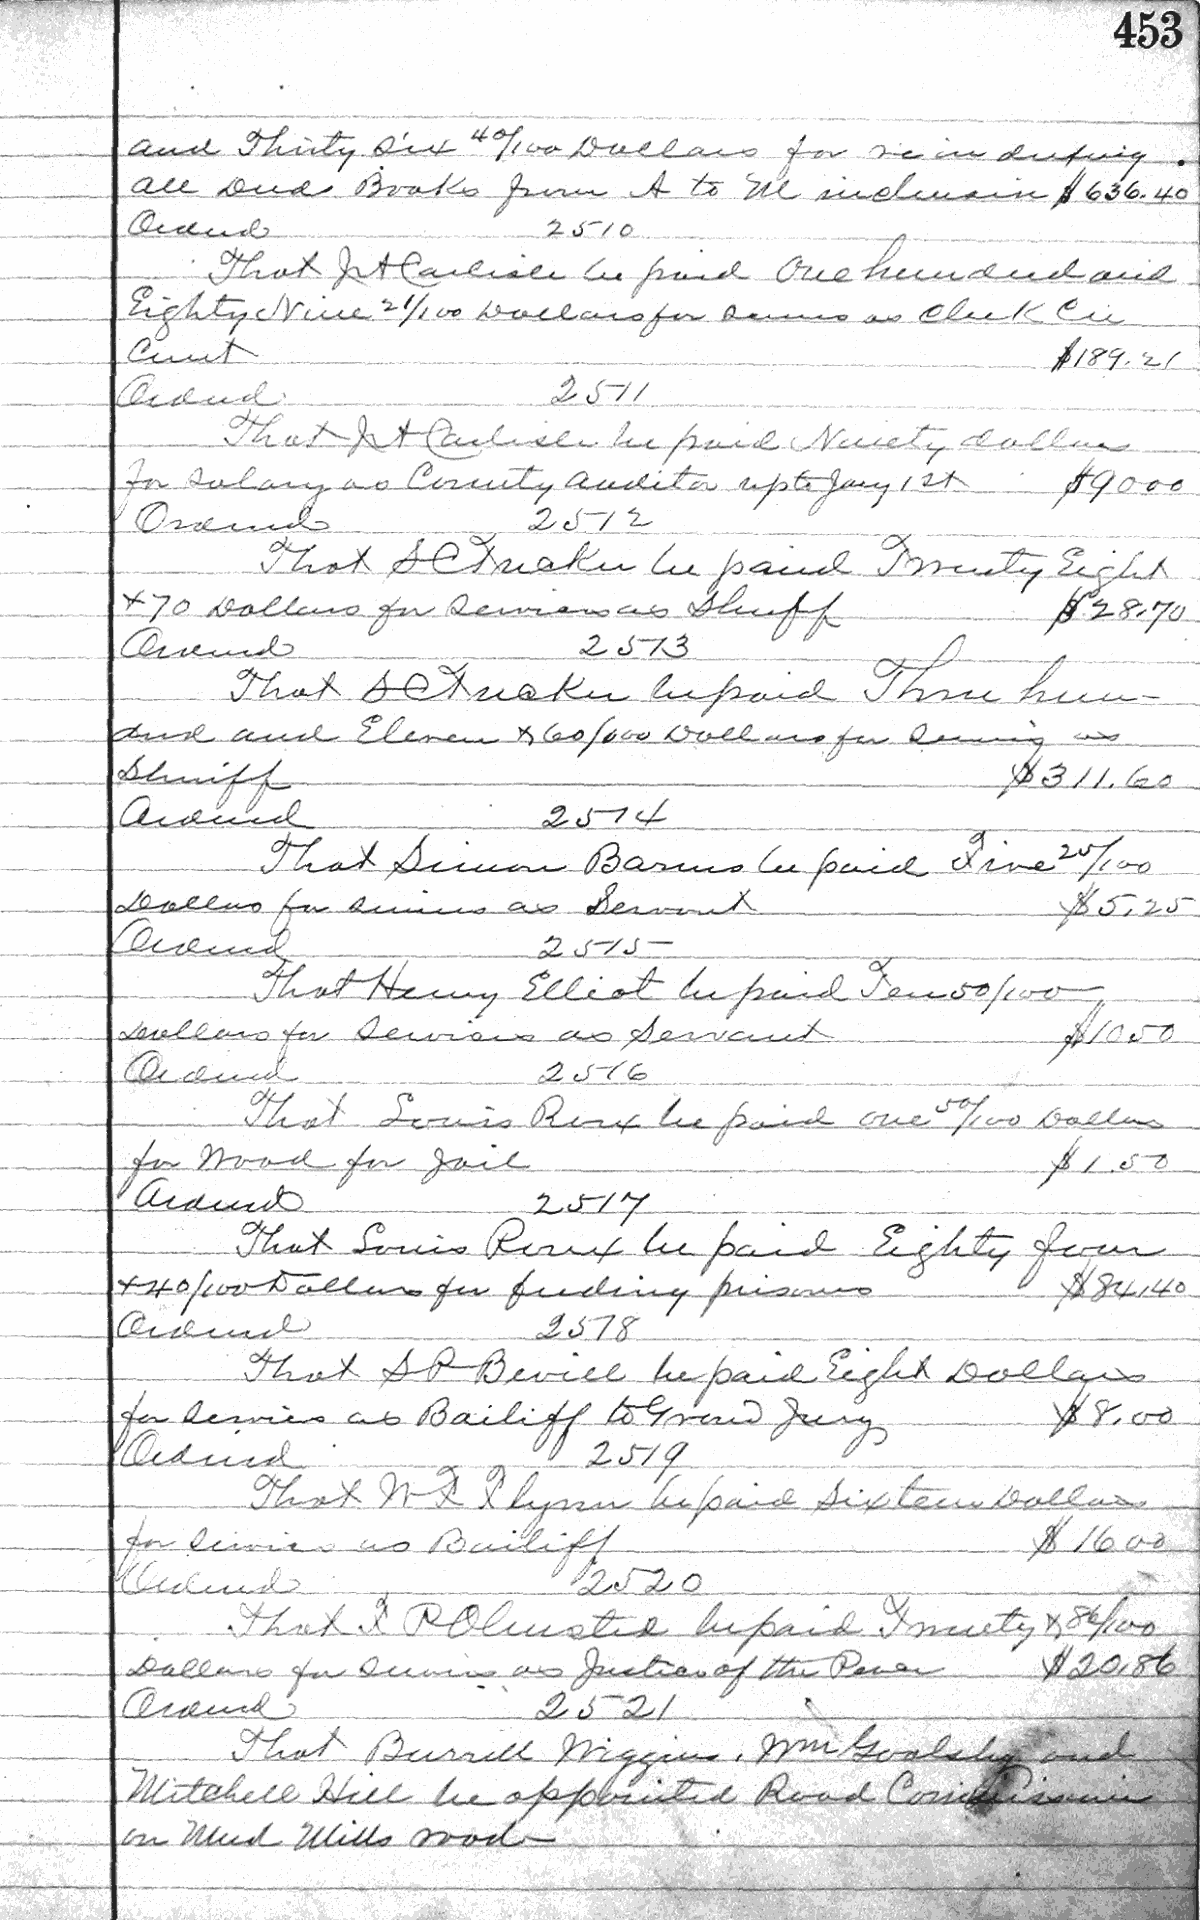 453
and Thirty Six 40/100 Dollars for reindexing
all Deed Books from A to M inclusive $636.40
Ordered 2510
That J A Carlisle be paid One hundred and
Eighty Nine 21/100 Dollars for services as Clerk Cir
Court $189.21
Ordered 2511
That J A Carlisle be paid Ninety dollars
for salary as County auditor upto Jany 1st $9000
Ordered 2512
That S C Tucker be paid Twenty Eight
+70 Dollars for services as Sheriff $28.70
Ordered 2513
That S C Tucker be paid Three hun-
dred and Eleven & 60/000 Dollars for serving as
Sheriff $311.60
Ordered 2514
That Simon Barnes be paid Five 25/100
Dollars for services as Servant $5.25
Ordered 2515
That Henry Elliot be paid Ten 50/100
Dollars for services as Servant $1050
Ordered 2516
That Louis Roux be paid one 50/100 Dollars
for Wood for Jail $1.50
Ordered 2517
That Louis Roux be paid Eighty four
+40/100 Dollars for feeding prisoners $84.40
Ordered 2518
That S P Bevill be paid Eight Dollars
for services as Bailiff to Grand Jury $8.00
Ordered 2519
That W F Flynn be paid Sixteen Dollars
for services as Bailiff $1600
Ordered 2520
That F P Olmsted be paid Twenty & 86/100
Dollars for services as Justice of the Peace $20.86
Ordered 2521
That Burrell Wiggins, Wm Goolsby and
Mitchell Hill be appointed Road Commissioners
on Mud Mills road